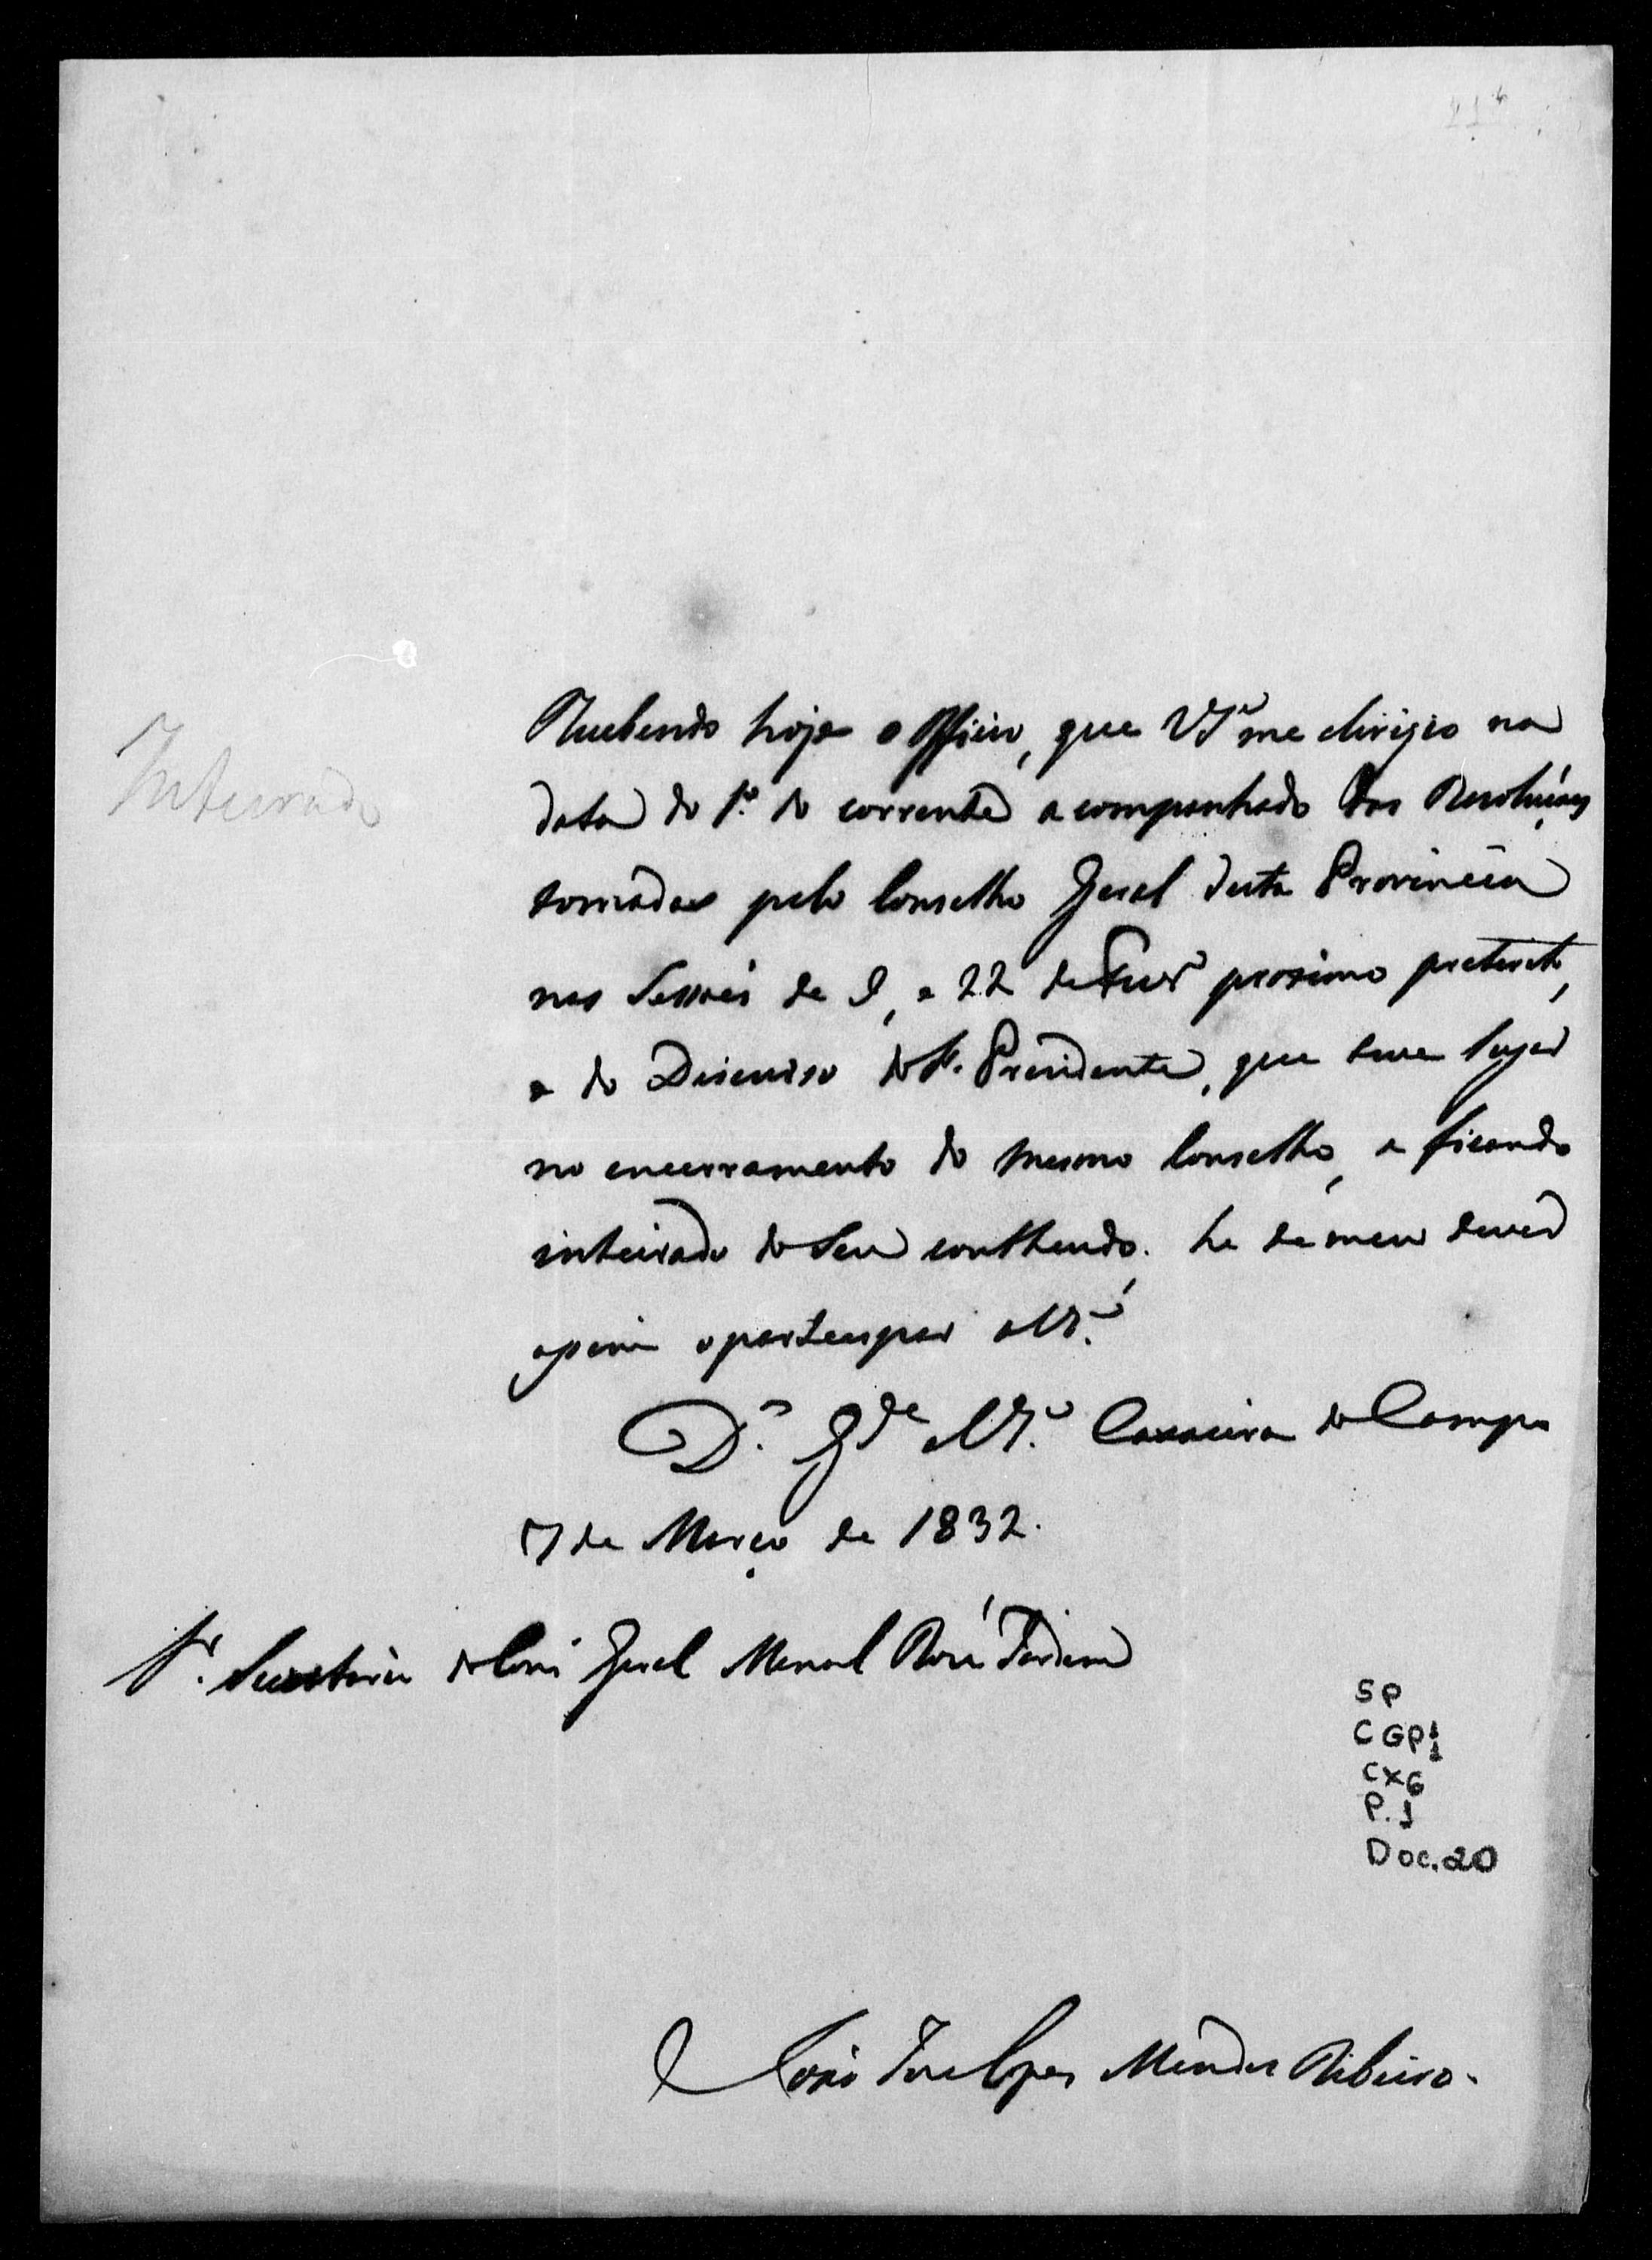 Inteirado
Recebendo hoje o Officio, que VSª me dirigio na
data do 1º do corrente acompanhado das Resoluçoes
tomadas pelo Conselho Geral desta Provincia
nas Sessoes de 9, e 22 de Fevrº proximo preterito,
e do Discurso do Sr. Presidente, que teve lugar
no encerramento do mesmo Conselho, e ficando
inteirado do Seu contheudo. he de meu dever
assim o partecipar a VSª
Ds. Gde a VSª Caxoeira do Campo
7 de Março de 1832.
Sr. Secretario do Consº Geral Manoel José
João José Lopes Mendes Ribeiro.
SP
CGP1
CX6
P.1
Doc.20